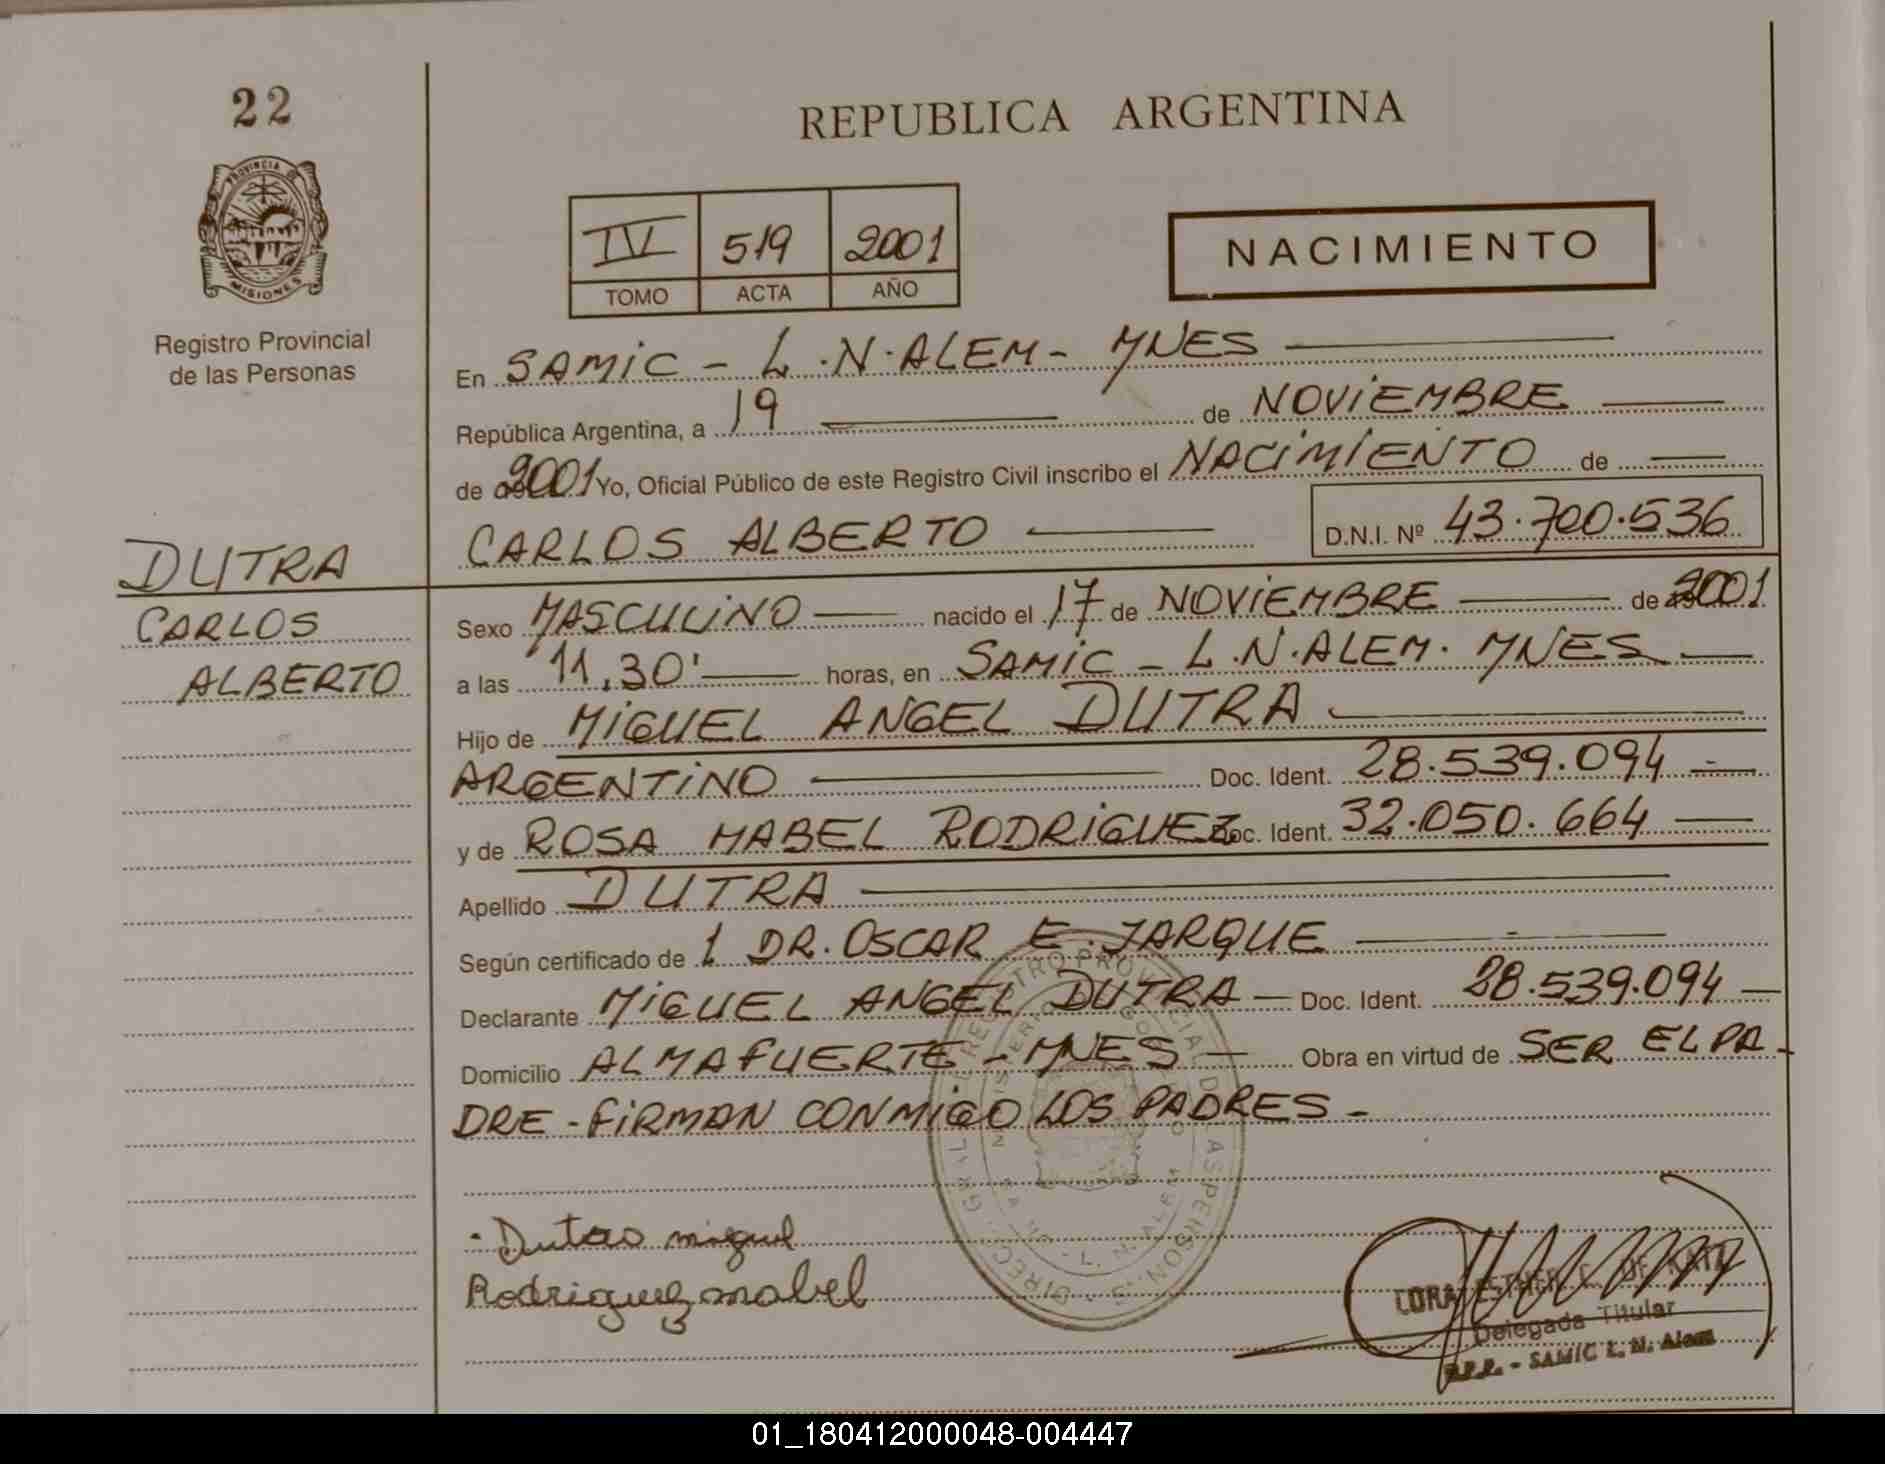 22
REPUBLICA ARGENTINA
PROVINCIA DE
MISIONES
Registro Provincial
de las Personas
IV 519 2001
TOMO ACTA AÑO
NACIMIENTO
En SAMIC - L.N.ALEM - MNES
República Argentina, a 19 de NOVIEMBRE
de 2001 Yo, Oficial Público de este Registro Civil inscribo el NACIMIENTO de
CARLOS ALBERTO D.N.I. Nº 43.700.536
DUTRA
CARLOS
ALBERTO
Sexo MASCULINO nacido el 17 de NOVIEMBRE de 2001
a las 11,30' horas, en SAMIC - L.N.ALEM. MNES
Hijo de MIGUEL ANGEL DUTRA
ARGENTINO Doc. Ident. 28.539.094
y de ROSA MABEL RODRIGUEZ Doc. Ident. 32.050.664
Apellido DUTRA
Según certificado de 1 DR. OSCAR E. JARQUE
Declarante MIGUEL ANGEL DUTRA Doc. Ident. 28.539.094
Domicilio ALMAFUERTE - MNES Obra en virtud de SER EL PA-
DRE - FIRMAN CONMIGO LOS PADRES -
Dutra miguel
Rodriguez mabel
ESTHER DE KATZ
Delegada Titular
R.P.P. - SAMIC L. N. Alem
01_180412000048-004447